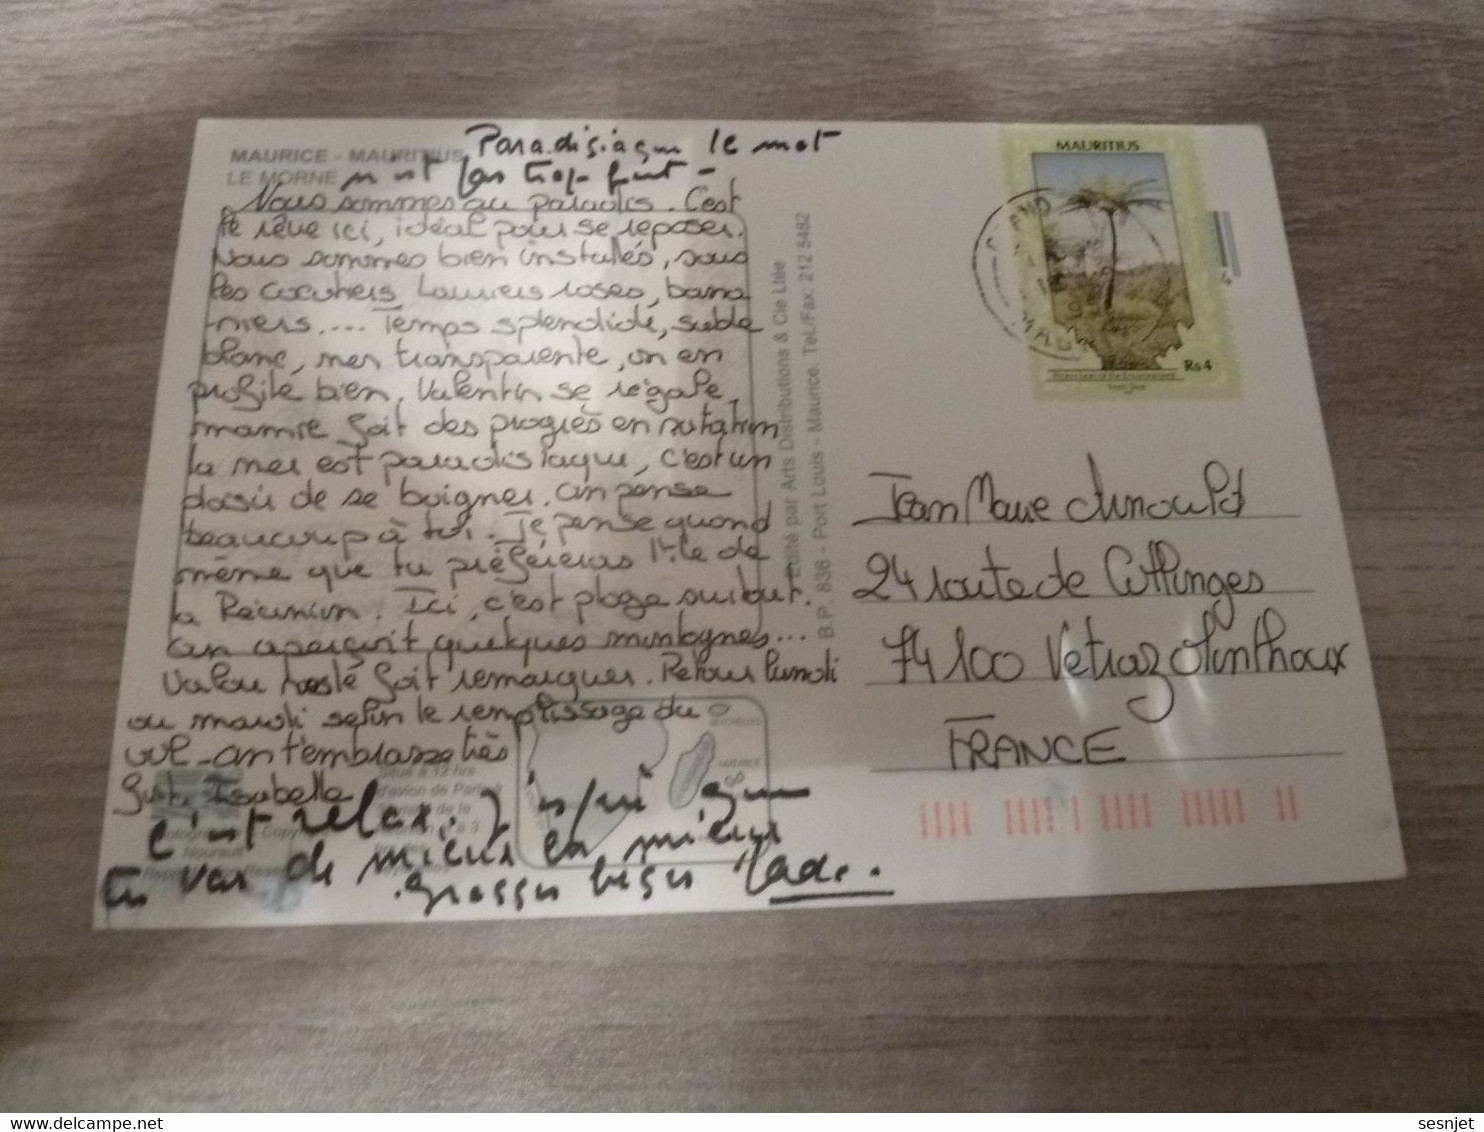 MAURICE - MAURITIUS
LE MORNE
Paradisiaque le mot
n'est pas trop fort -
Nous sommes au paradis. C'est
le rêve ici, idéal pour se reposer.
Nous sommes bien installés, sous
les cocotiers, lauriers roses, bana
-niers.... Temps splendide, sable
blanc, mer transparente, on en
profite bien. Valentin se régale,
mamie fait des progrès en natation,
la mer est paradisiaque, c'est un
plaisir de se baigner. On pense
beaucoup à toi. Je pense quand
même que tu préféreras l'île de
la Réunion. Ici, c'est plage surtout.
On aperçoit quelques montagnes...
Valou fait remarquer. Retour lundi
ou mardi selon le remplissage du
vol - On t'embrasse très
fort. Isabelle
c'est relax. J'espère que
tu vas de mieux en mieux
grosses bises
Situé à 12 hrs
d'avion de Paris
Nourault
Edité par Arts Distributions & Cie Ltée
B.P. 836 - Port Louis - Maurice. Tel./Fax: 212 5482
MAURITIUS
Rs 4
Jean Marie Arnould
24 route de
74 100 Vetraz Monthoux
FRANCE